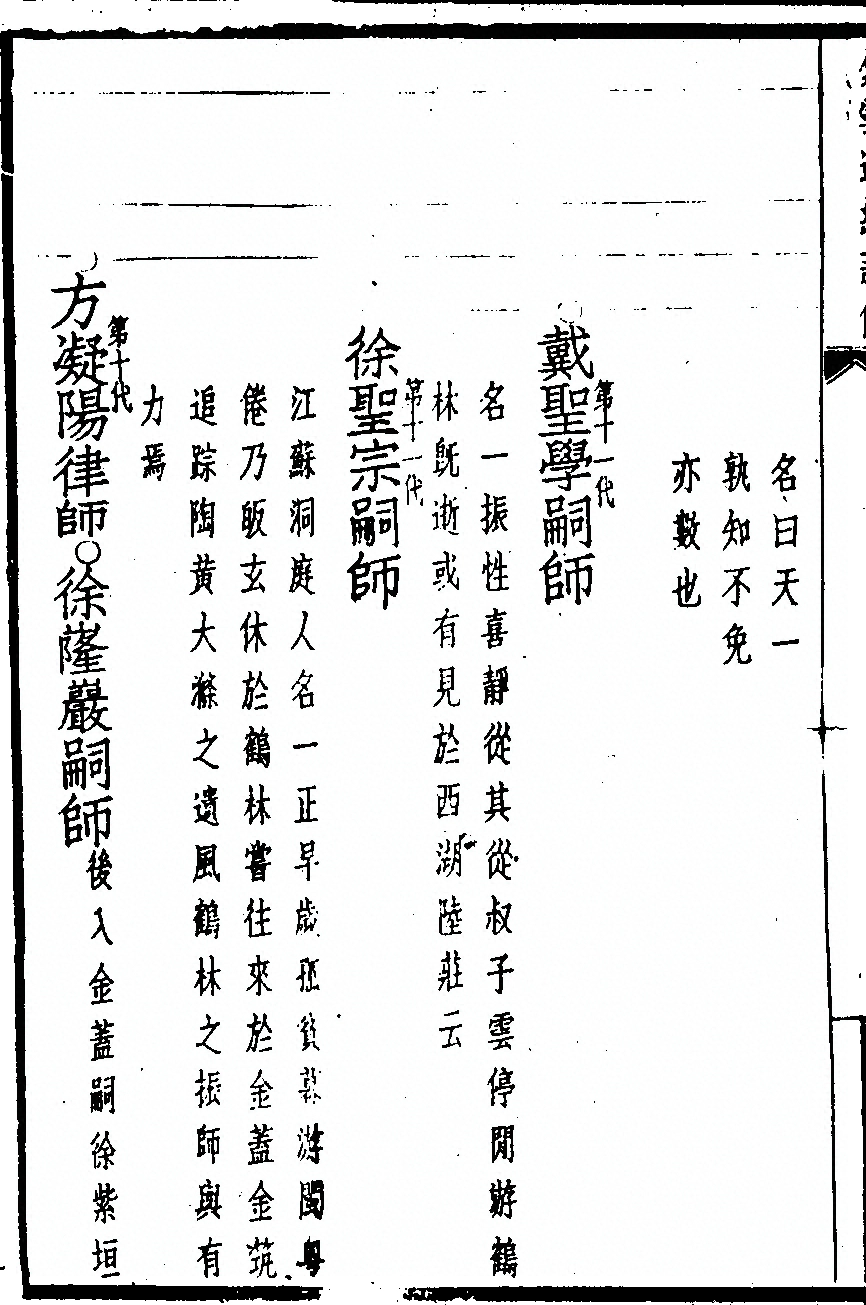 名曰天一
孰知不免
亦數也
戴聖學嗣師
第十一代
名一振性喜靜從其從叔子雲停閒遊鶴
林旣逝或有見於西湖陸莊云
徐聖宗嗣師
第十一代
江蘇洞庭人名一正早歲孤貧募游閩粵
倦乃皈玄休於鶴林嘗往來於金蓋金筑
追踪陶黃大滌之遺風鶴林之振師與有
力焉
方凝陽律師○徐隆巖嗣師後入金蓋嗣徐紫垣
第十代